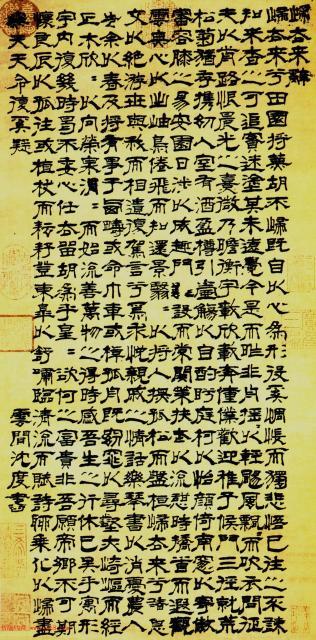 歸去來辭
歸去來兮田園將蕪胡不歸既自以心為形役奚惆悵而獨悲悟已往之不諫
知來者之可追實迷塗其未遠覺今是而昨非舟搖搖以輕颺風飄飄而吹衣問征
夫以前路恨晨光之熹微乃瞻衡宇載欣載奔僮僕歡迎稚子候門三徑就荒
松菊猶存攜幼入室有酒盈樽引壺觴以自酌眄庭柯以怡顏倚南窗以寄傲
審容膝之易安園日涉以成趣門雖設而常關策扶老以流憩時矯首而遐觀
雲無心以出岫鳥倦飛而知還景翳翳以將入撫孤松而盤桓歸去來兮請息
交以絕游世與我而相遺復駕言兮焉求悅親戚之情話樂琴書以消憂農人
告余以春及將有事于西疇或命巾車或棹孤舟既窈窕以尋壑亦崎嶇而經
丘木欣欣以向榮泉涓涓而始流善萬物之得時感吾生之行休已矣乎寓形
宇內復幾時曷不委心任去留胡為乎皇皇欲何之富貴非吾願帝鄉不可期
懷良辰以孤往或植杖而耘耔登東皋以舒嘯臨清流而賦詩聊乘化以歸盡
樂夫天命復奚疑
雲間沈度書